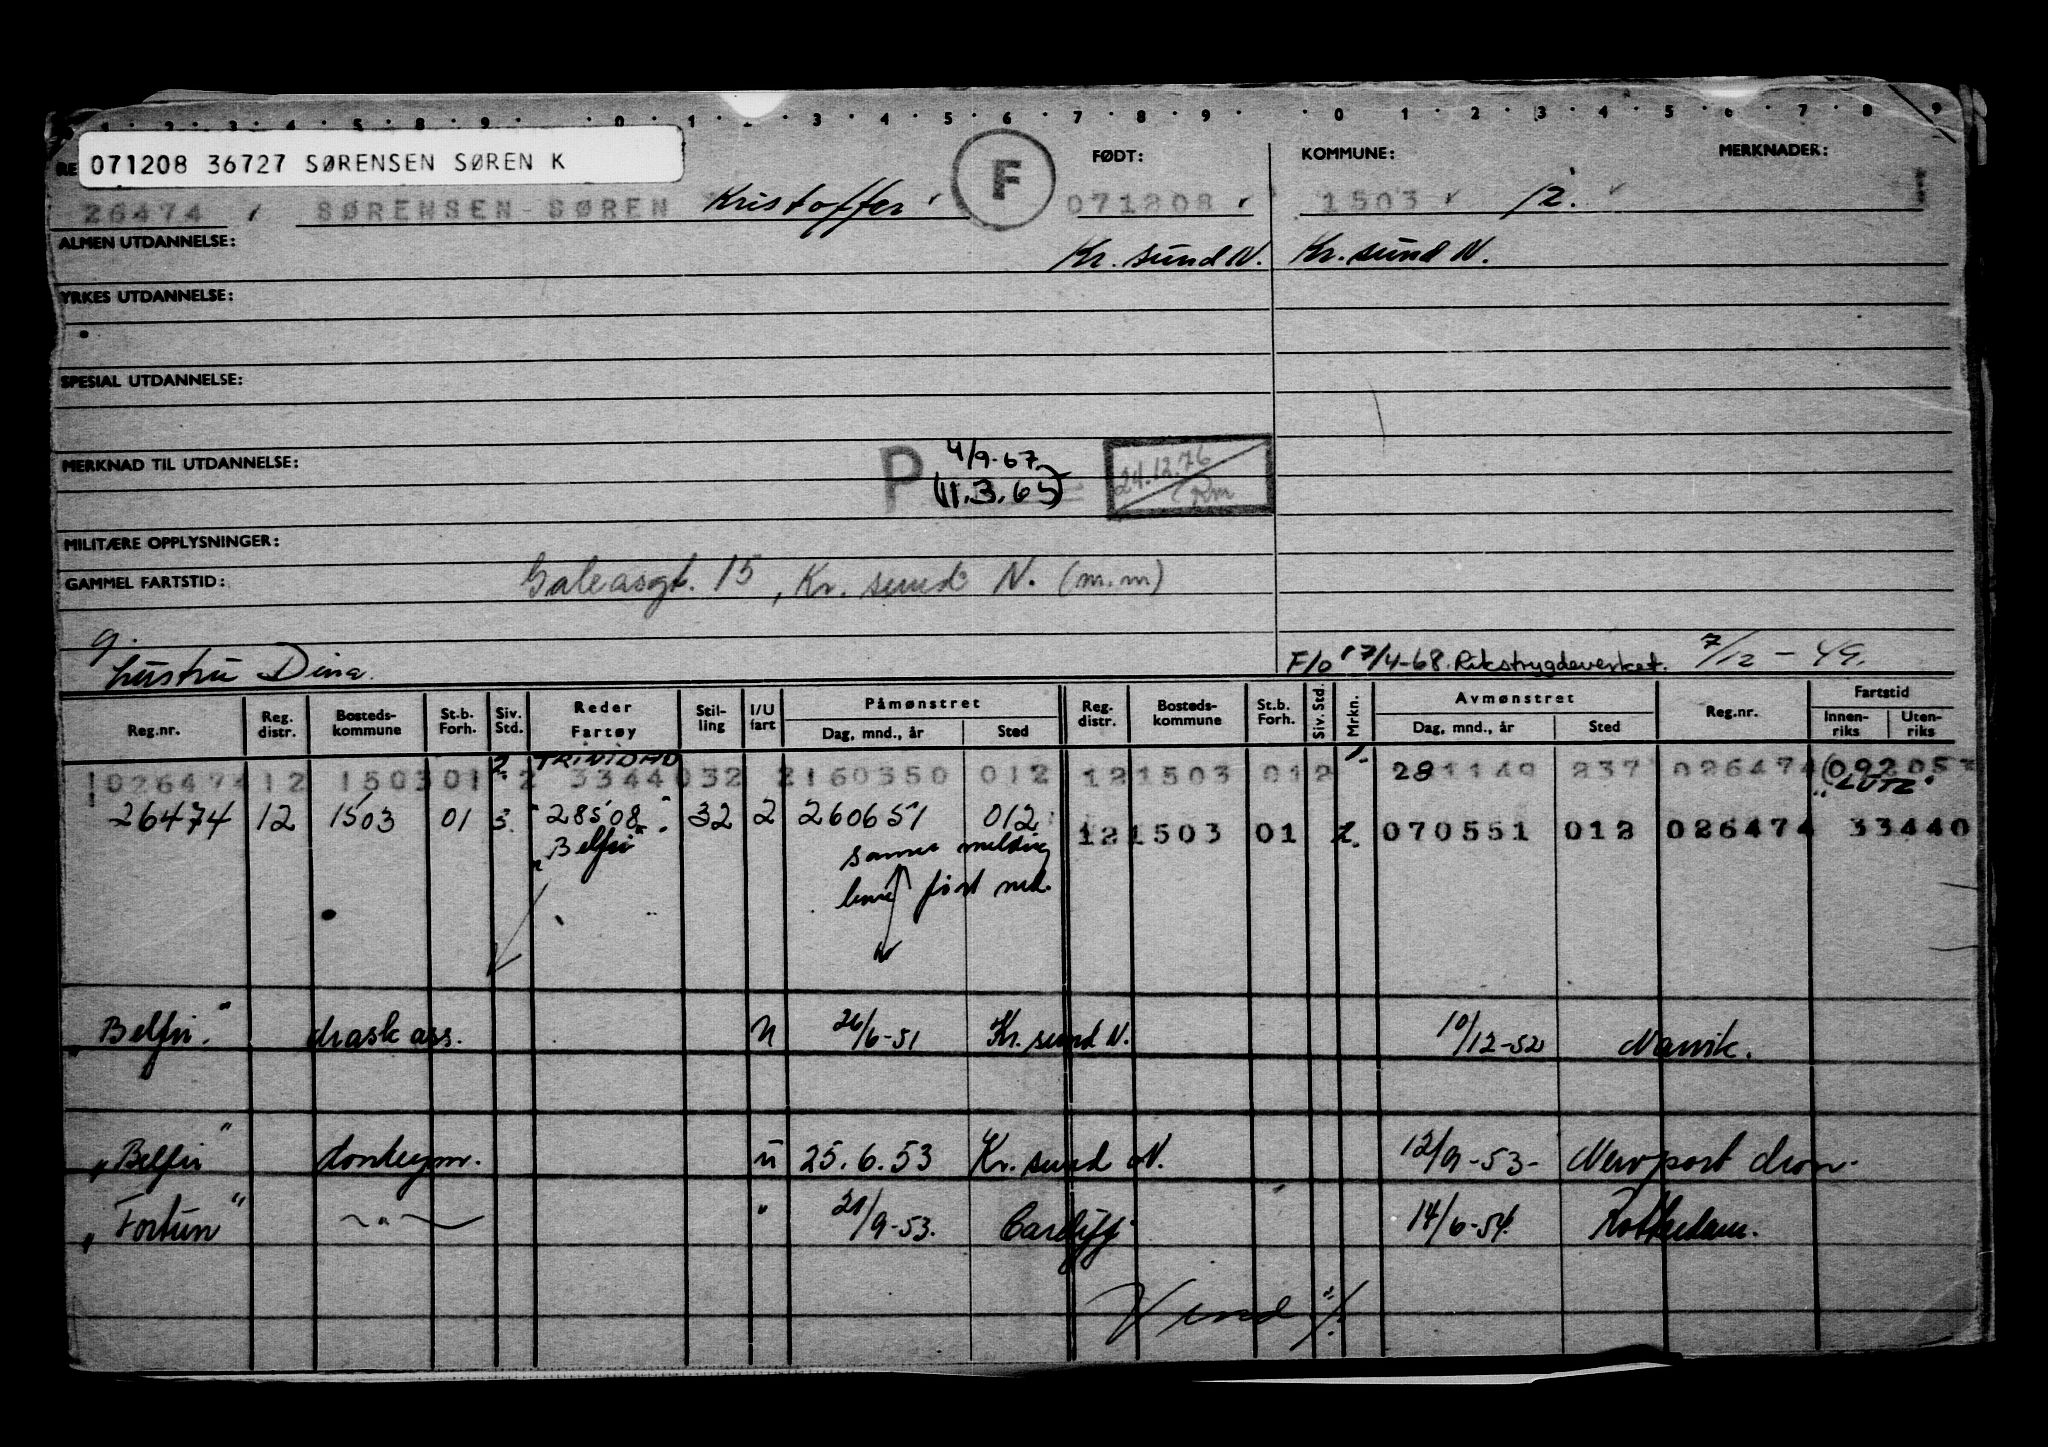 1 2 3 4 5 6 7 8 9 0 1 2 3 4 5 6 7 8 9 0 1 2 3 4 5 6 7 8 9
071208 36727 SØRENSEN SØREN K
FØDT: KOMMUNE: MERKNADER:
26474 SØRENSEN SØREN Kristoffer F 071208 1503 12.
ALMEN UTDANNELSE: Kr. sund N. Kr. sund N.
YRKES UTDANNELSE:
SPESIAL UTDANNELSE:
MERKNAD TIL UTDANNELSE: P 4/9-67 24.12.76
(11.3.65) Rm
MILITÆRE OPPLYSNINGER:
GAMMEL FARTSTID: Galeasgt. 15, Kr. sund N. (m.m)
g.
hustru Dina. F/o 17/4-68. Rikstrygdeverket. 7/12-49.
Reg.nr. Reg. distr. Bosteds-kommune St.b. Forh. Siv. Std. Reder Fartøy Stil-ling I/U fart Påmønstret Dag, mnd., år Sted Reg. distr. Bosteds-kommune St.b. Forh. Siv. Std. Mrkn. Avmønstret Dag, mnd., år Sted Reg.nr. Fartstid Innen-riks Uten-riks
TRINIDAD
026474 12 1503 01 2 33440 32 2 160350 012 12 1503 01 2 281149 237 026474
"LUTZ"
26474 12 1503 01 3. 28508 32 2 260651 012 12 1503 01 2. 070551 012 026474 33440
"Belfri" samme melding
først med.
"Belfri" mask ass. U 26/6-51 Kr. sund N. 10/12-52 Narvik.
"Belfri" donkeym. U 25.6.53 Kr. sund N. 12/9-53- Newport Mon.
"Fortun" —"— " 21/9-53. Cardiff 14/6-54. Rotterdam.
Vend %.